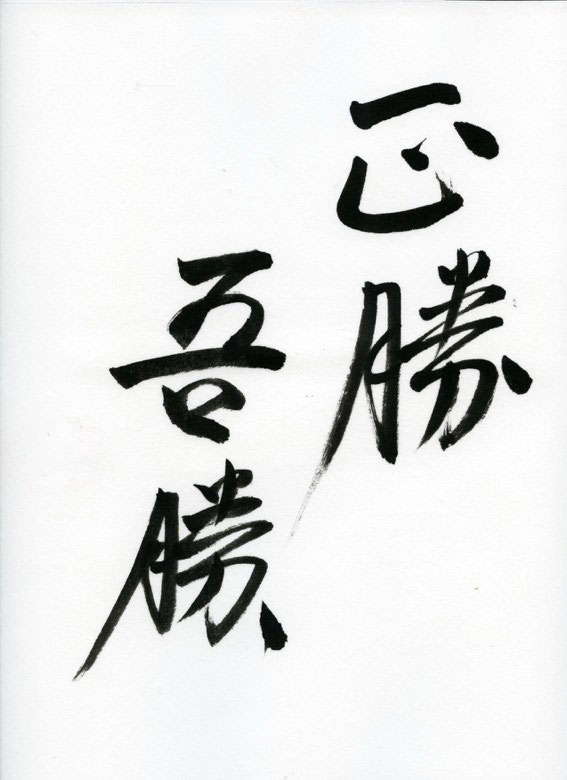 正勝
吾勝